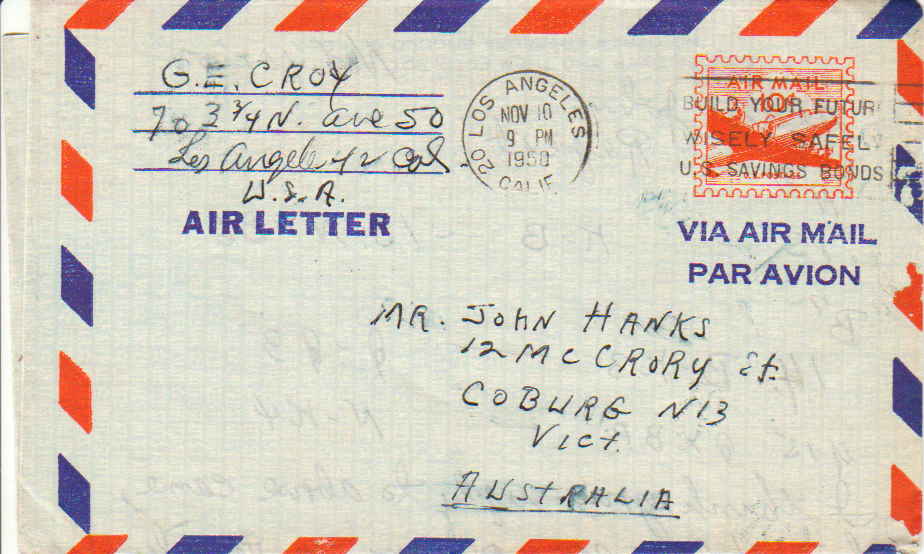 G.E. CROY
703 3/4 N. ave 50
Los Angeles 42 Cal.
U.S.A.
AIR LETTER
LOS ANGELES
20
NOV 10
9 PM
1950
CALIF.
AIR MAIL
BUILD YOUR FUTUR
WISELY SAFEL
U.S. SAVINGS BONDS
VIA AIR MAIL
PAR AVION
MR. JOHN HANKS
12 MCCRORY St.
COBURG N13
Vict.
AUSTRALIA